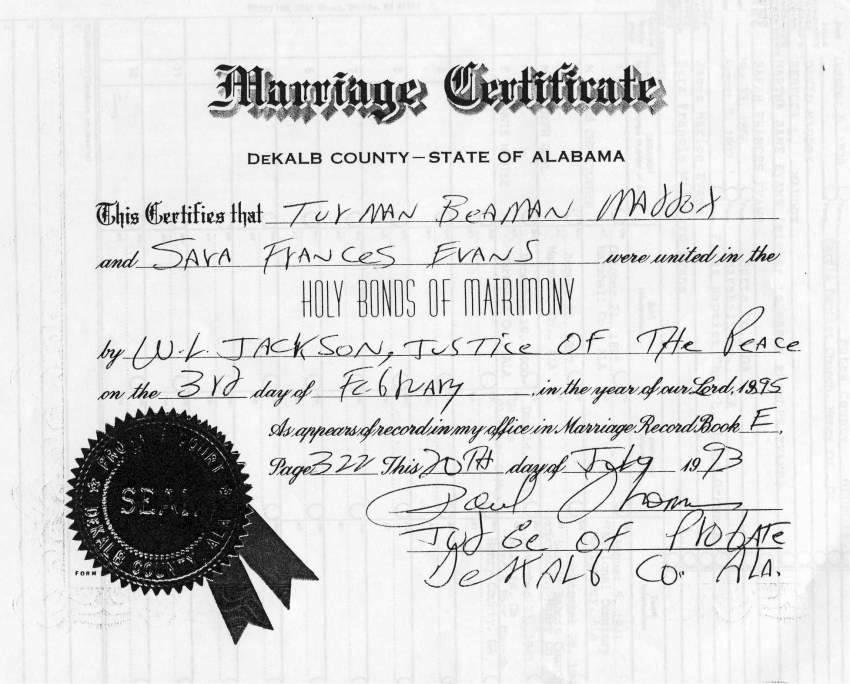 Marriage Certificate
DeKALB COUNTY—STATE OF ALABAMA
This Certifies that Turman Beaman Maddox
and Sara Frances Evans were united in the
HOLY BONDS OF MATRIMONY
by W. L. Jackson, Justice of the Peace
on the 3rd day of February, in the year of our Lord, 1895
As appears of record in my office in Marriage Record Book E,
Page 322 This 20th day of July 1993
Paul Thomas
Judge of Probate
DeKalb Co. Ala.
PROBATE COURT
SEAL
DEKALB COUNTY, ALA.
FORM